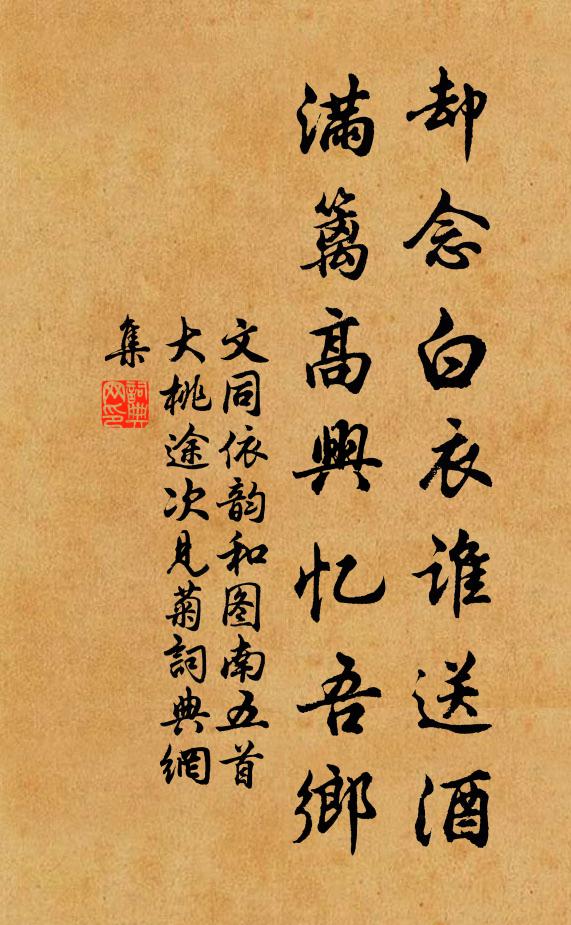 却念白衣谁送酒
满篱高興忆吾鄉
文同依韵和图南五首
大桃途次见菊詞典網
集
詞典网印